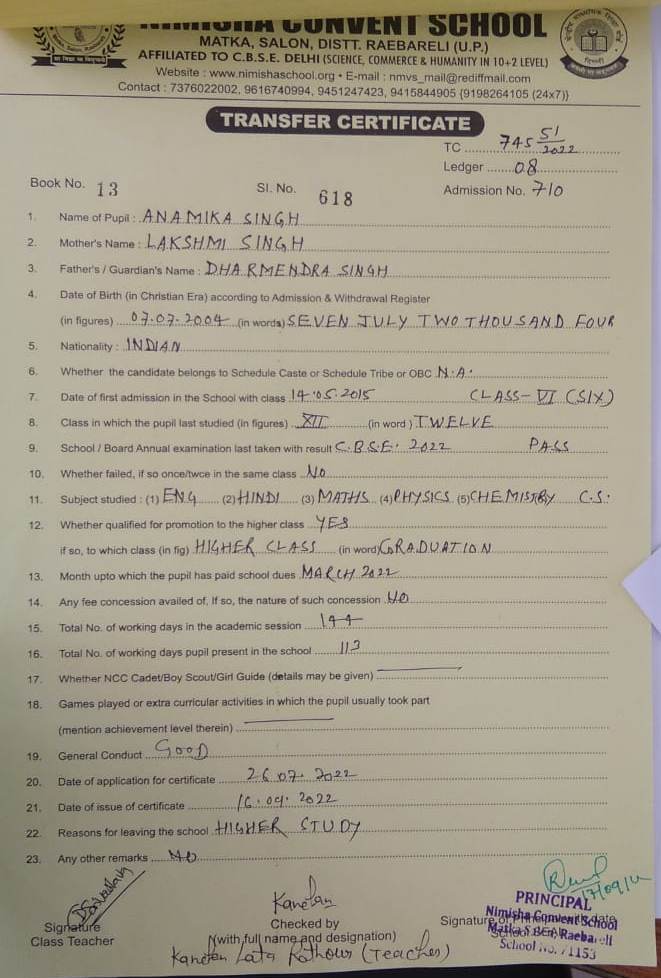 NIMISHA CONVENT SCHOOL
MATKA, SALON, DISTT. RAEBARELI (U.P.)
AFFILIATED TO C.B.S.E. DELHI (SCIENCE, COMMERCE & HUMANITY IN 10+2 LEVEL)
Website : www.nimishaschool.org • E-mail : nmvs_mail@rediffmail.com
Contact : 7376022002, 9616740994, 9451247423, 9415844905 {9198264105 (24x7)}
TRANSFER CERTIFICATE
TC 745 51/2022
Ledger 08
Book No. 13 Sl. No. 618 Admission No. 710
1. Name of Pupil : ANAMIKA SINGH
2. Mother's Name : LAKSHMI SINGH
3. Father's / Guardian's Name : DHARMENDRA SINGH
4. Date of Birth (in Christian Era) according to Admission & Withdrawal Register
(in figures) 07.07.2004 (in words) SEVEN JULY TWO THOUSAND FOUR
5. Nationality : INDIAN
6. Whether the candidate belongs to Schedule Caste or Schedule Tribe or OBC N.A.
7. Date of first admission in the School with class 14.05.2015 CLASS-VI (SIX)
8. Class in which the pupil last studied (in figures) XII (in word) TWELVE
9. School / Board Annual examination last taken with result C.B.S.E. 2022 PASS
10. Whether failed, if so once/twce in the same class NO
11. Subject studied : (1) ENG (2) HINDI (3) MATHS (4) PHYSICS (5) CHEMISTRY C.S.
12. Whether qualified for promotion to the higher class YES
if so, to which class (in fig) HIGHER CLASS (in word) GRADUATION
13. Month upto which the pupil has paid school dues MARCH 2022
14. Any fee concession availed of, If so, the nature of such concession NO
15. Total No. of working days in the academic session 144
16. Total No. of working days pupil present in the school 113
17. Whether NCC Cadet/Boy Scout/Girl Guide (details may be given)
18. Games played or extra curricular activities in which the pupil usually took part
(mention achievement level therein)
19. General Conduct GOOD
20. Date of application for certificate 26.07.2022
21. Date of issue of certificate 16.09.2022
22. Reasons for leaving the school HIGHER STUDY
23. Any other remarks NO
Signature
Class Teacher
Checked by
(with full name and designation)
Lata Rathour (Teacher)
17/09/22
Signature of Principal with date
School Seal
PRINCIPAL
Nimisha Convent School
Matka Salon, Raebareli
School No. 71153